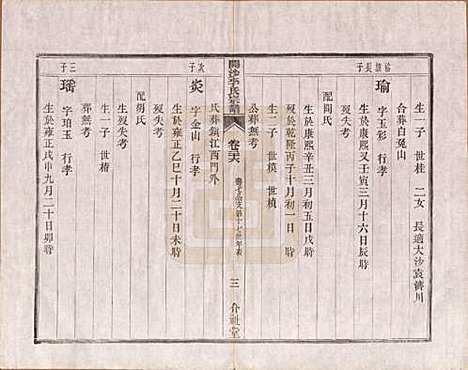 生一子 世桂 二女 長適大沙袁濟川
合葬白兔山
長子
瑜 字玉彩 行孝
生於康熙壬寅三月十六日辰時
歿失考
配閻氏
生於康熙辛丑三月初五日戌時
歿於乾隆丙子十月初一日
生二子 世模 世楨
公葬無考
李氏宗譜
卷三六
三
氏葬鎮江西門外
次子
炎 字金山 行孝
生於雍正乙巳十月二十日未時
歿失考
配胡氏
歿失考
生一子 世楷
葬無考
三子
瑶 字珀玉 行孝
生於雍正戊申九月二十日卯時